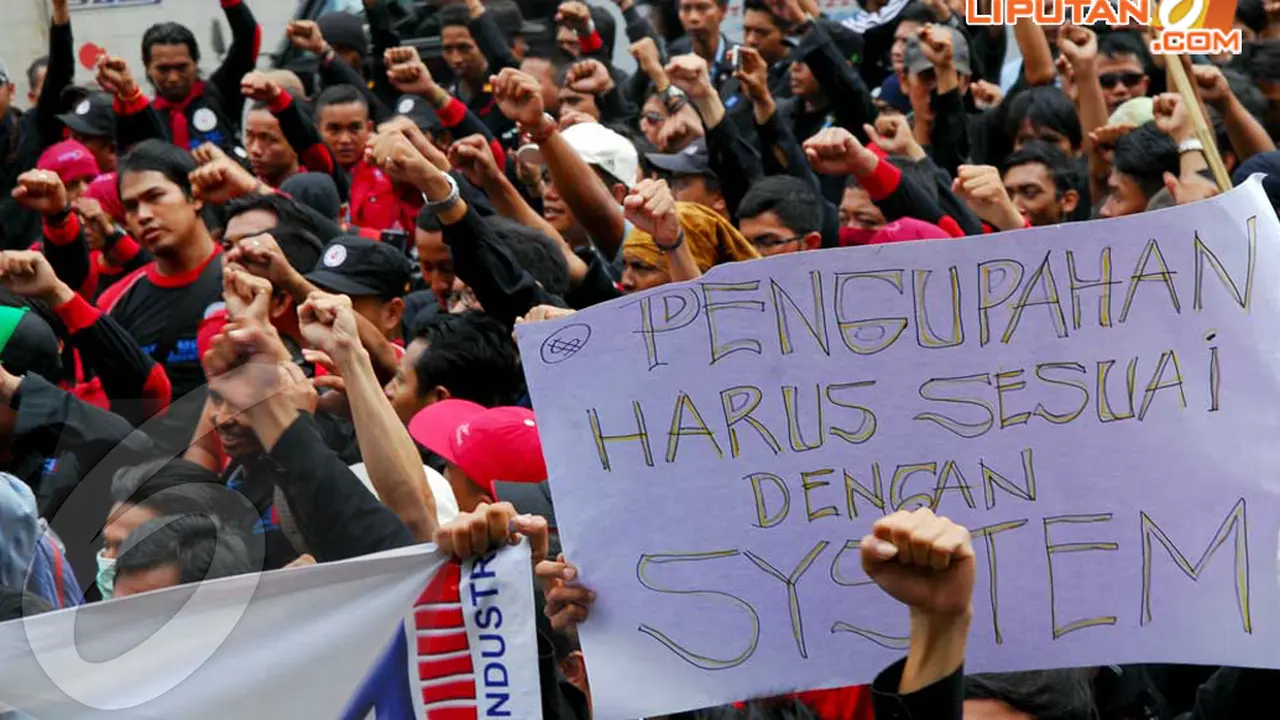 LIPUTAN 6
.COM
PENGUPAHAN
HARUS SESUAi
DENGAN
SYSTEM
INDUSTR